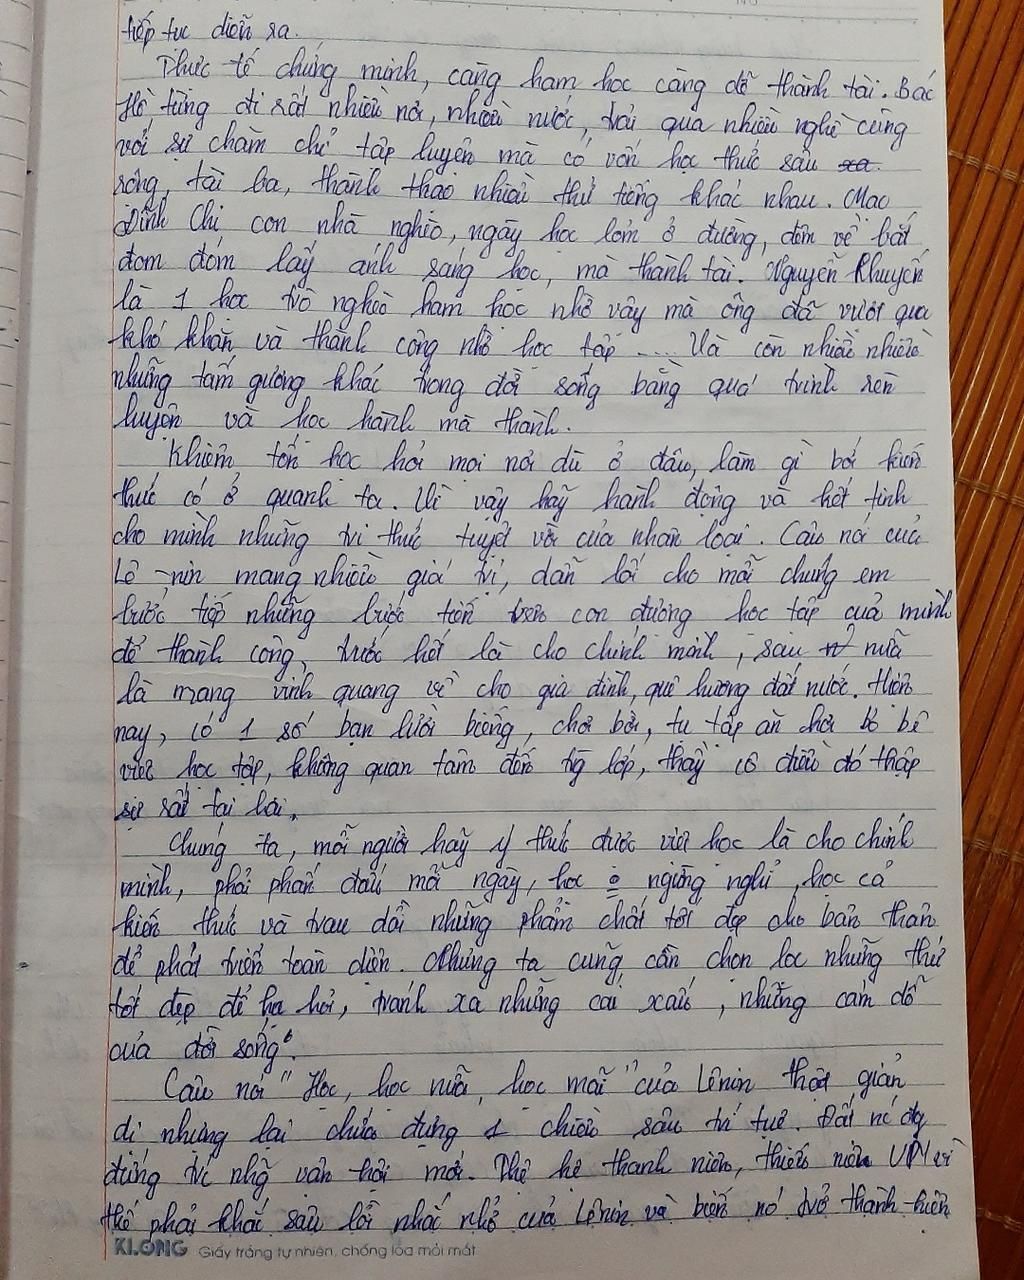 tiếp tục diễn ra.
Thực tế chứng minh, càng ham học càng dễ thành tài. Bác
Hồ từng đi rất nhiều nơi, nhiều nước, trải qua nhiều nghề cùng
với sự chăm chỉ tập luyện mà có vốn học thức sâu xa
rộng, tài ba, thành thạo nhiều thứ tiếng khác nhau. Mạc
Đĩnh Chi con nhà nghèo, ngày học lỏm ở đường, đêm về bắt
đom đóm lấy ánh sáng học, mà thành tài. Nguyễn Khuyến
là 1 học trò nghèo ham học nhờ vậy mà ông đã vượt qua
khó khăn và thành công nhờ học tập .... Và còn nhiều nhiều
những tấm gương khác trong đời sống bằng quá trình rèn
luyện và học hành mà thành.
Khiêm tốn học hỏi mọi nơi dù ở đâu, làm gì bởi kiến
thức có ở quanh ta. Vì vậy hãy hành động và hết tình
cho mình những tri thức tuyệt vời của nhân loại. Câu nói của
Lê-nin mang nhiều giá trị, dẫn lối cho mỗi chúng em
bước tiếp những bước tiến trên con đường học tập của mình
để thành công, trước hết là cho chính mình, sau nữa
là mang vinh quang về cho gia đình, quê hương đất nước. Hiện
nay, có 1 số bạn lười biếng, chơi bời, tụ tập ăn chơi bỏ bê
việc học tập, không quan tâm đến trg lớp, thầy cô điều đó thập
sự rất tai hại.
Chúng ta, mỗi người hãy ý thức được việc học là cho chính
mình, phải phấn đấu mỗi ngày, học ngừng nghỉ, học cả
kiến thức và trau dồi những phẩm chất tốt đẹp cho bản thân
để phát triển toàn diện. Chúng ta cũng cần chọn lọc những thứ
tốt đẹp để học hỏi, tránh xa những cái xấu, những cám dỗ
của đời sống.
Câu nói "Học, học nữa, học mãi" của Lênin thật giản
dị nhưng lại chứa đựng 1 chiều sâu trí tuệ. Đất nc đg
đứng trc nhg vận hội mới. Thế hệ thanh niên, thiếu niên VN vì
thế phải khắc sâu lời nhắc nhở của Lênin và biến nó trở thành hiện
KLONG Giấy trắng tự nhiên, chống lóa mỏi mắt